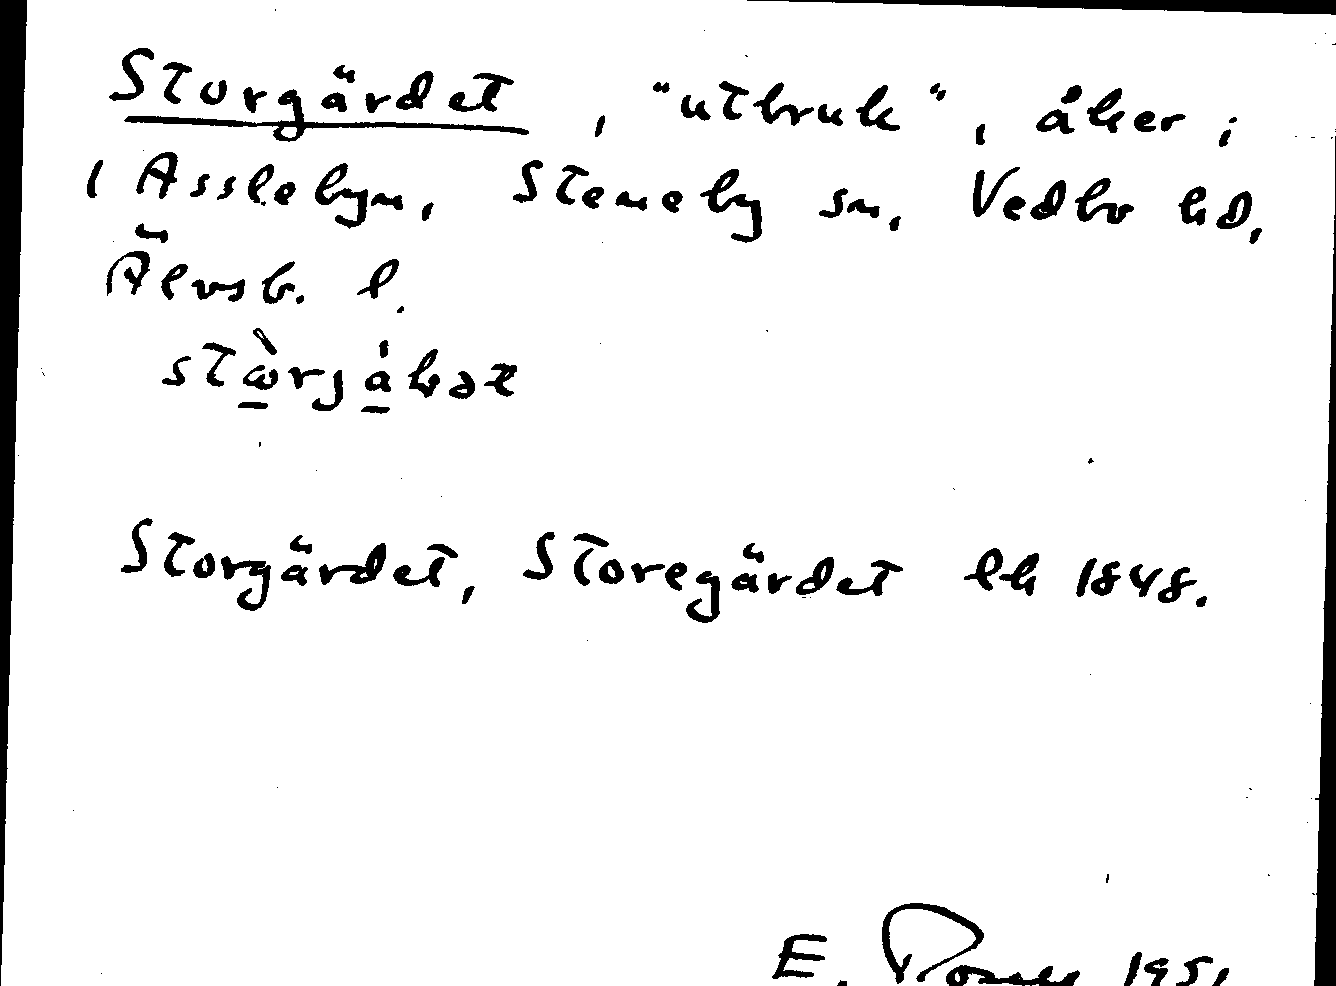 Storgärdet, "utbruk", åker i
1 Asslebyn, Steneby sn, Vedbo hd,
Älvsb. l.
Storgärdet, Storegärdet lh 1848.
E. 1951